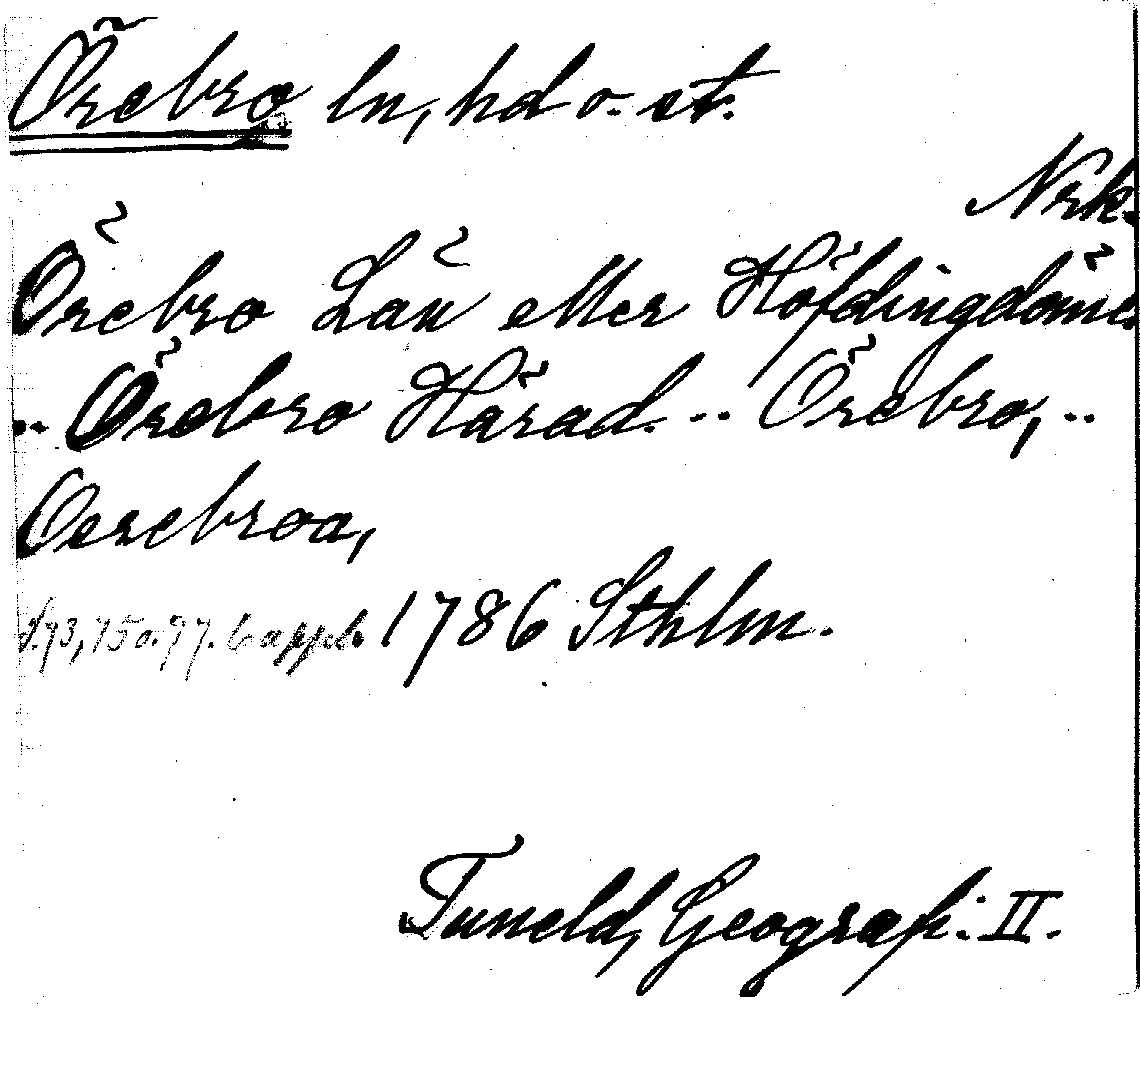 Örebro ln, hd o. st.
Nrk.
Örebro Län eller Höfdingdöme.
.. Örebro Härad. .. Örebro, ..
Oerebroa,
s. 73, 75 o. 77. 6 appl. 1786 Sthlm.
Tuneld, Geografi. II.